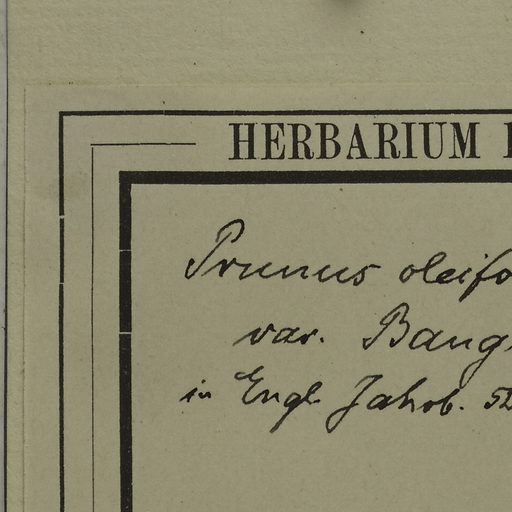 HERBARIUM
Prunus oleifo
var. Bang
in Engl. Jahrb. 52